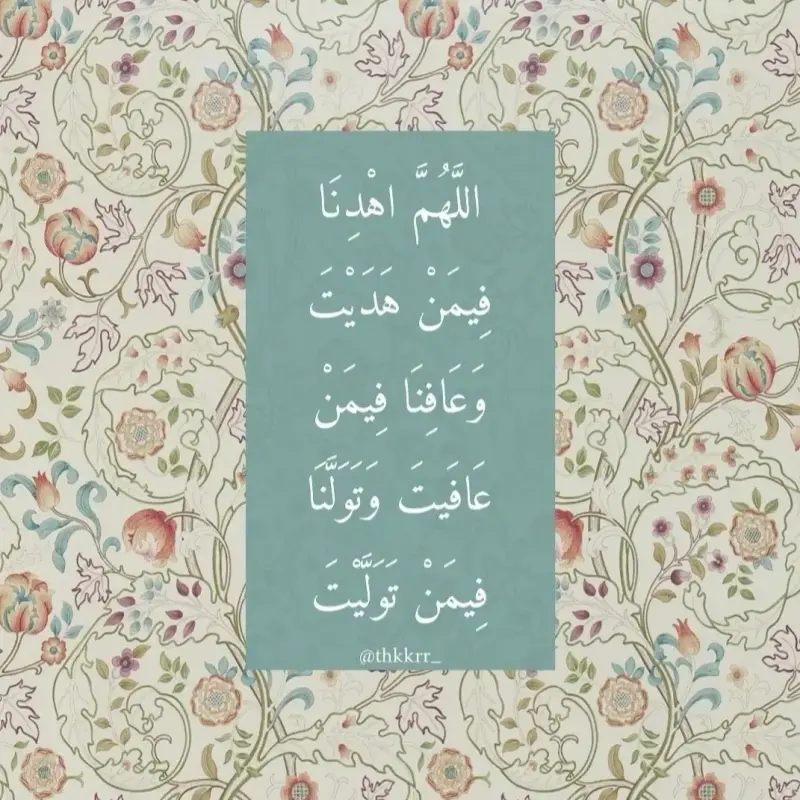 اللَّهُمَّ اهْدِنَا
فِيمَنْ هَدَيْتَ
وَعَافِنَا فِيمَنْ
عَافَيتَ وَتَوَلَّنَا
فِيمَنْ تَوَلَّيْتَ
@thkkrr_